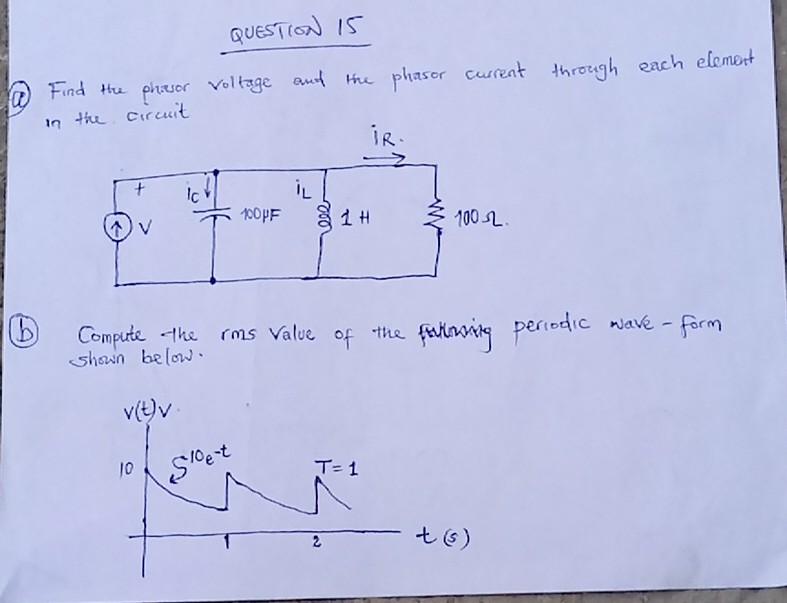 QUESTION 15
a Find the phasor voltage and the phasor current through each element
in the circuit
iR.
+ ic iL
V 100µF 1 H 100 Ω.
b Compute the rms value of the following periodic wave - form
shown below.
v(t)v.
10 10e-t T = 1
1 2 t (s)